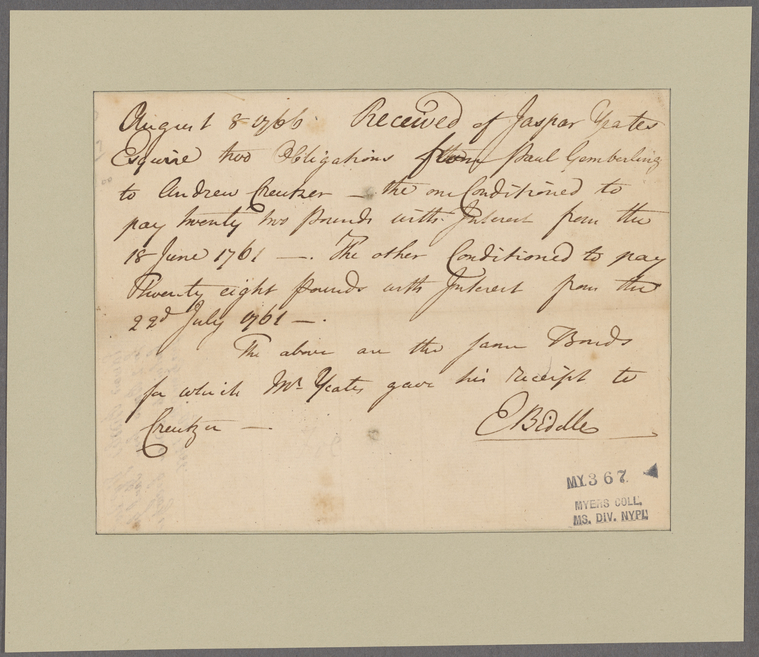 August 8 1766. Received of Jaspar Yeates
Esquire two Obligations from Paul Gemberling
to Andrew Creutzer — the one Conditioned to
pay twenty two pounds with Interest from the
18 June 1761 —. The other Conditioned to pay
Twenty eight pounds with Interest from the
22d July 1761 —.
The above are the same Bonds
for which Mr Yeates gave his receipt to
Creutzer —
E Biddle
MY.367.
MYERS COLL.
MS. DIV. NYPL